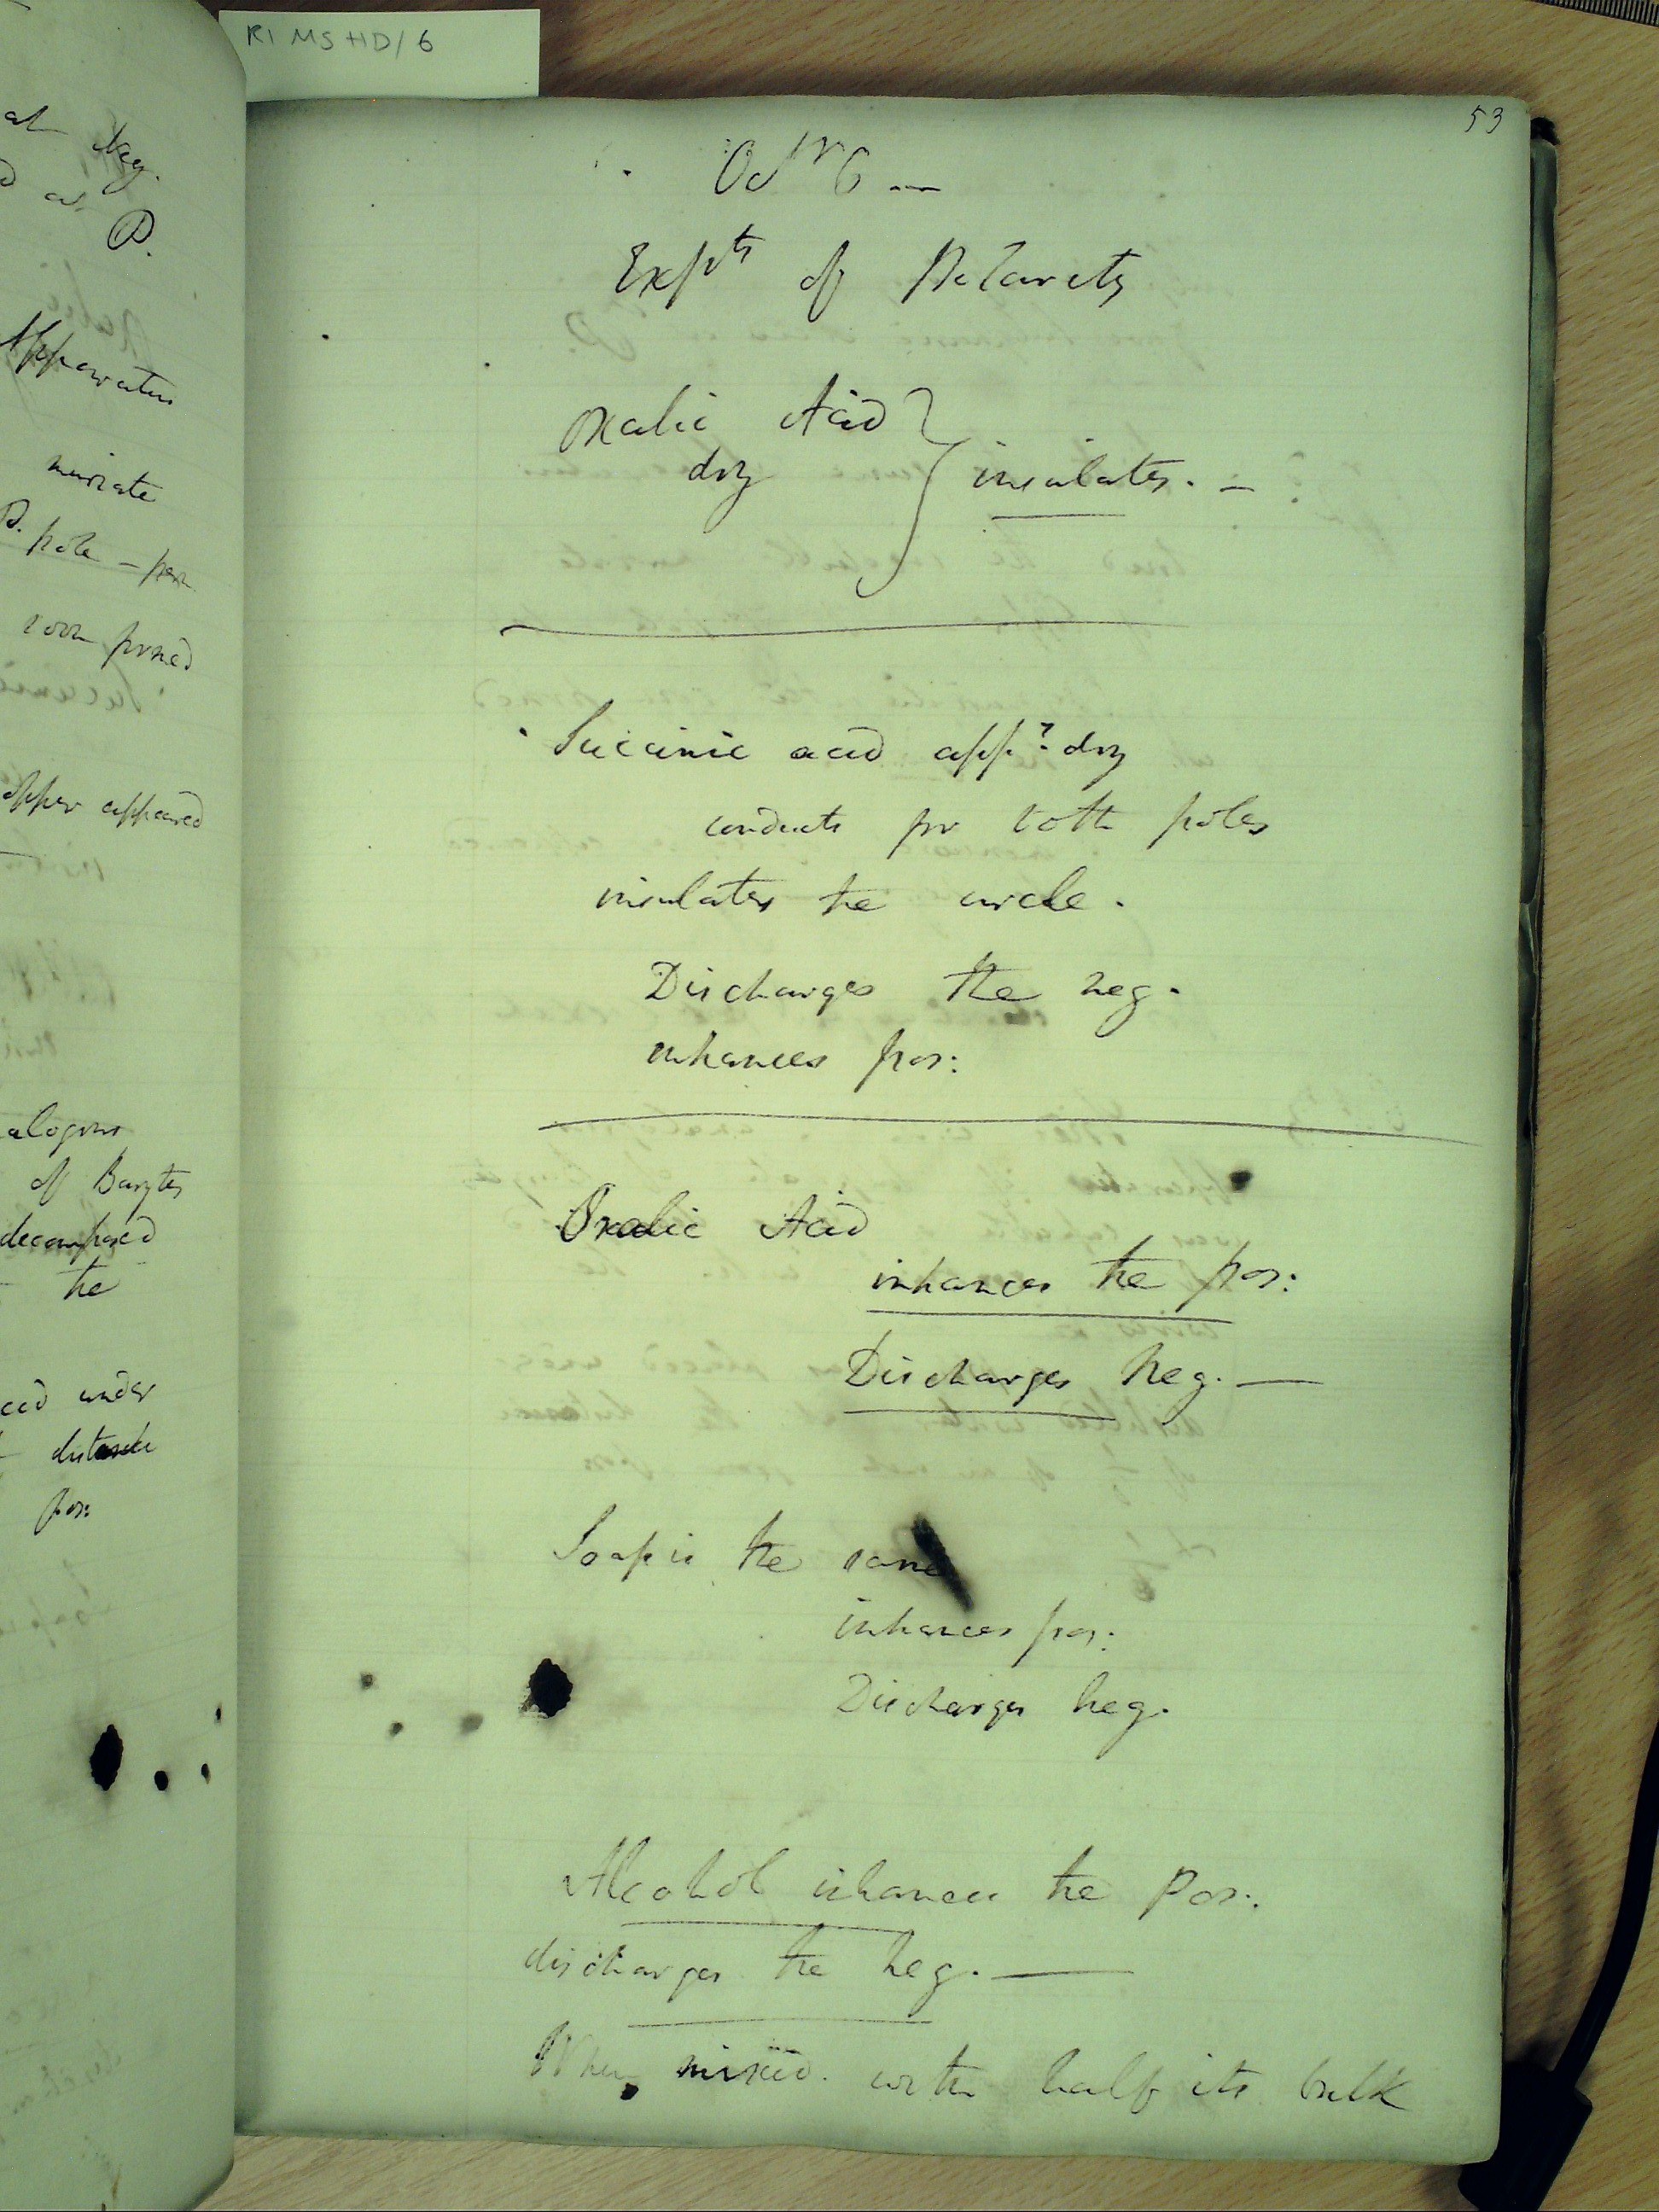 RI MS HD/6
53
at Neg.
P.
Apparatus
muriate
P. pole –
soon formed
appeared
alogous
of Barytes
decomposed
the
under
distance
pos:
Octr 6 —
Expts of Polarity
Oxalic Acid
dry
insulates. –
Succinic acid appy. dry
conducts for both poles
insulates the circle.
Discharges the neg.
inhances pos:
Oxalic Acid
inhances the pos:
Discharges Neg. —
Soap is the same
inhances pos:
Discharges Neg.
Alcohol inhances the Pos:.
discharges the Neg. —
When mixed with half its bulk